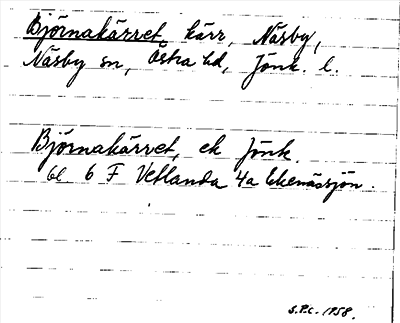 Björnakärret, kärr, Näsby,
Näsby sn, Östra hd, Jönk. l.
Björnakärret, ek Jönk.
bl 6 F Vetlanda 4a Ekenässjön.
S.P.C. 1958.